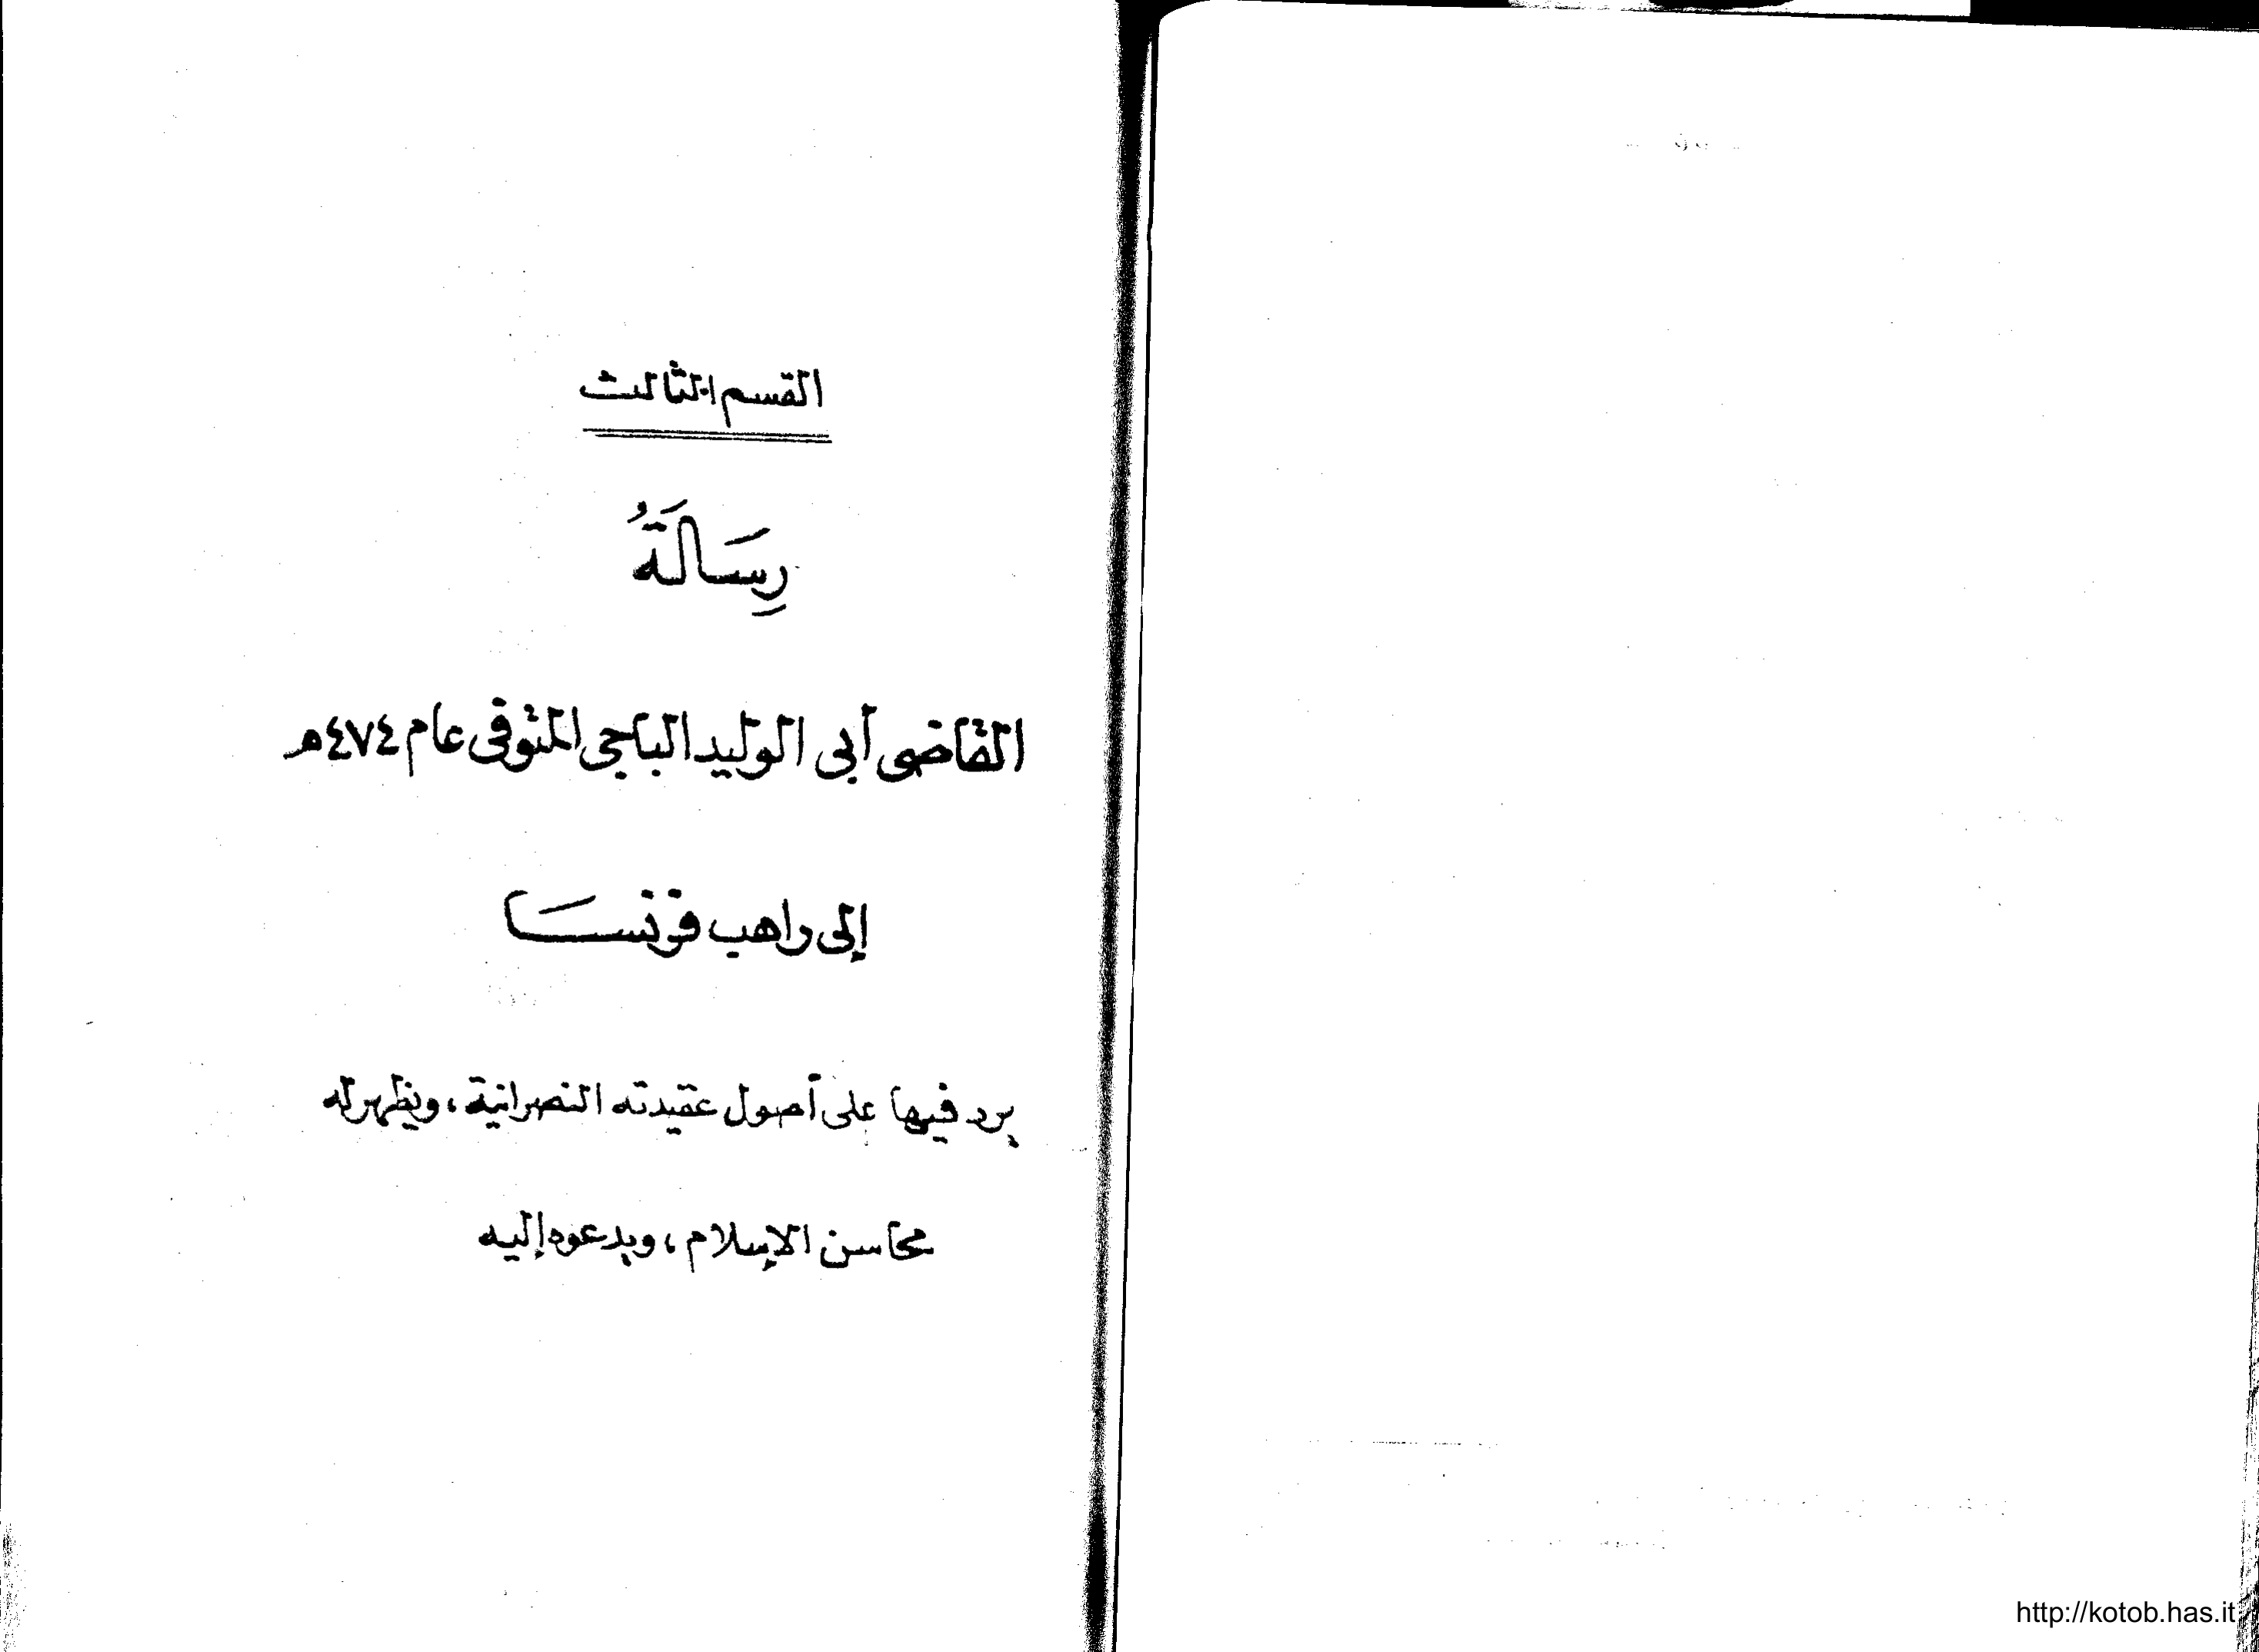 القسم الثالث
رِسَالَةُ
القاضى أبى الوليد الباجى المتوفى عام ٤٧٤ه
إلى راهب فرنسَا
يرد فيها على أصول عقيدته النصرانية، ويظهر له
محاسن الإسلام، ويدعوه إليه
http://kotob.has.it